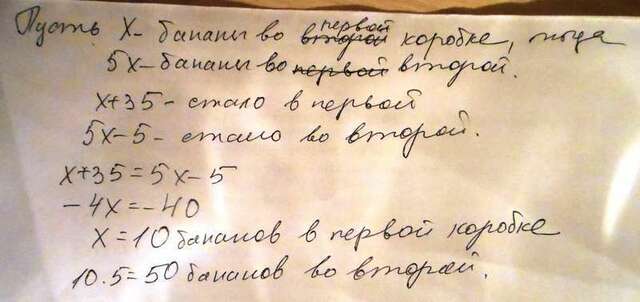 Пусть x - бананы во второй первой коробке, тогда
5x - бананы во первой второй.
x+35 - стало в первой
5x-5 - стало во второй.
x+35=5x-5
-4x=-40
x=10 бананов в первой коробке
10.5=50 бананов во второй.